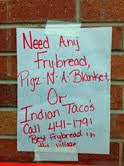 Need Any
Frybread,
Pigz N' A Blanket,
Or
Indian Tacos
Call 441-1791
Best Frybread in
the village